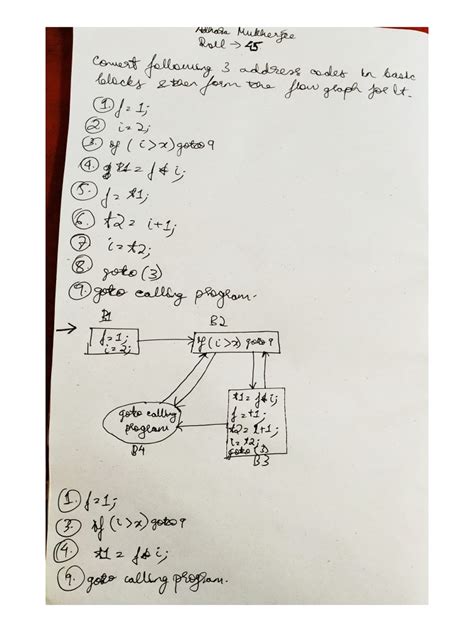 Mukherjee
Roll → 45
Convert following 3 address codes in basic
blocks & then form the flow graph for it.
1. f=1;
2 i=2;
3. if (i>x) goto 9
4. t1 = f * i;
5. f = t1;
6. t2 = i+1;
7 i=t2;
8 goto (3)
9. goto calling program.
B1
f=1;
i=2;
B2
if (i>x) goto 9
goto calling
program
B4
t1 = f * i;
f = t1;
t2 = i+1;
i=t2;
goto (3)
B3
1. f=1;
3. if (i>x) goto 9
4. t1 = f * i;
9. goto calling program.